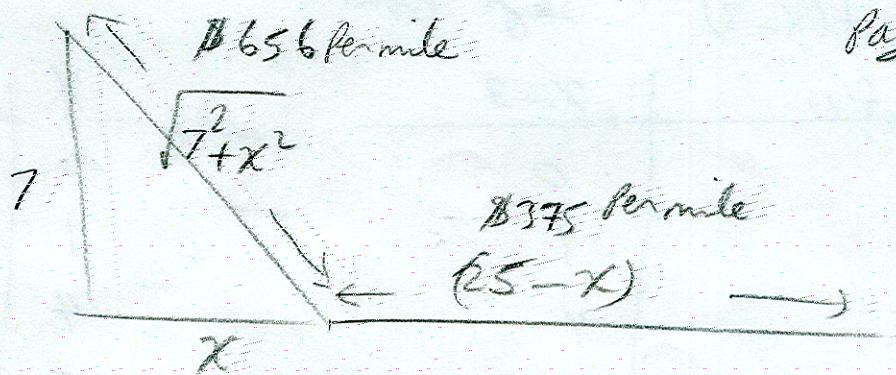 $656 Per mile
Pa
√7²+x²
7
$375 Per mile
(25-x)
x